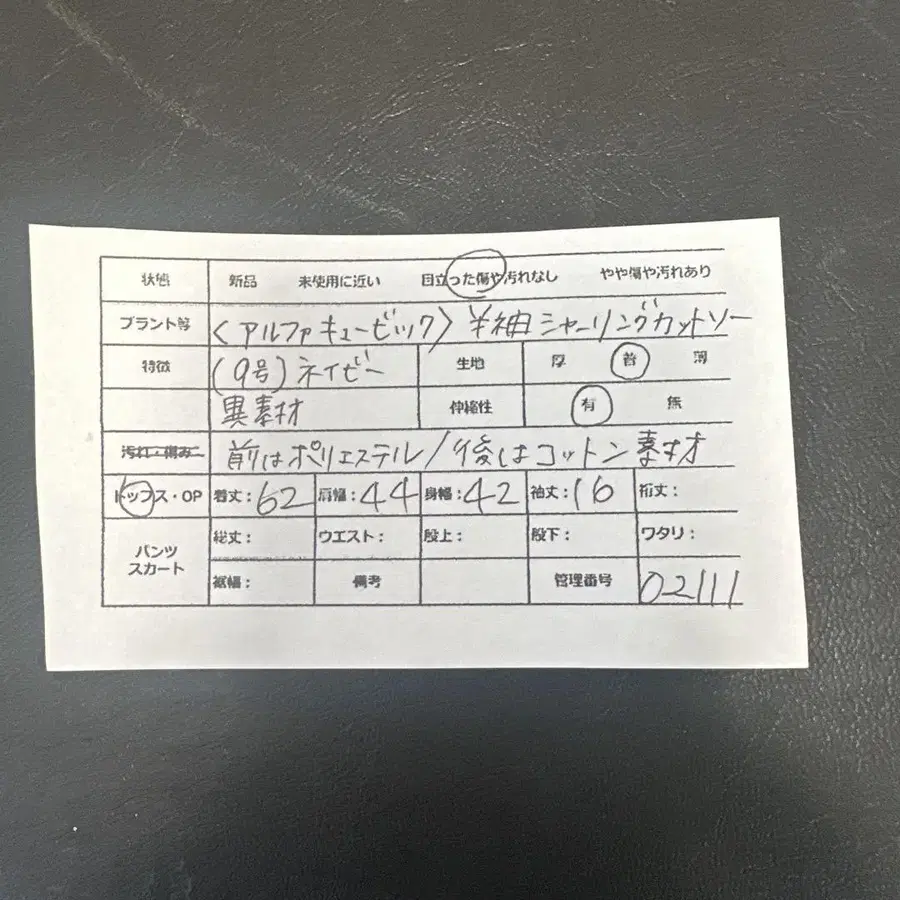 状態 新品 未使用に近い 目立った傷や汚れなし やや傷や汚れあり
ブランド等 〈アルファキュービック〉半袖シャーリングカットソー
特徴 (9号)ネイビー 生地 厚 普 薄
異素材 伸縮性 有 無
汚れ・傷み 前はポリエステル/後はコットン素材
トップス・OP 着丈:62 肩幅:44 身幅:42 袖丈:16 裄丈:
パンツ スカート 総丈: ウエスト: 股上: 股下: ワタリ:
裾幅: 備考 管理番号 02111